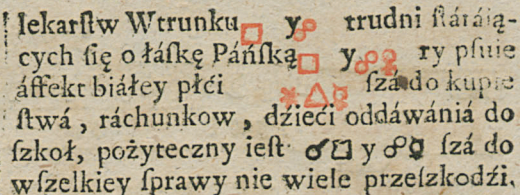 lekarſtw Wtrunku □ y ☍ trudni ſtáráią-
cych ſię o łáſkę Páńſką □ y ☍♀ ry pſuie
áffekt białey płći ⚹ △ ☿ ſzá do kupie
ſtwá, ráchunkow, dźieći oddáwánia do
szkoł, pożyteczny ieſt ♂ □ y ☍ ☿ ſzá do
wſzelkiey ſprawy nie wiele przeſzkodźi.